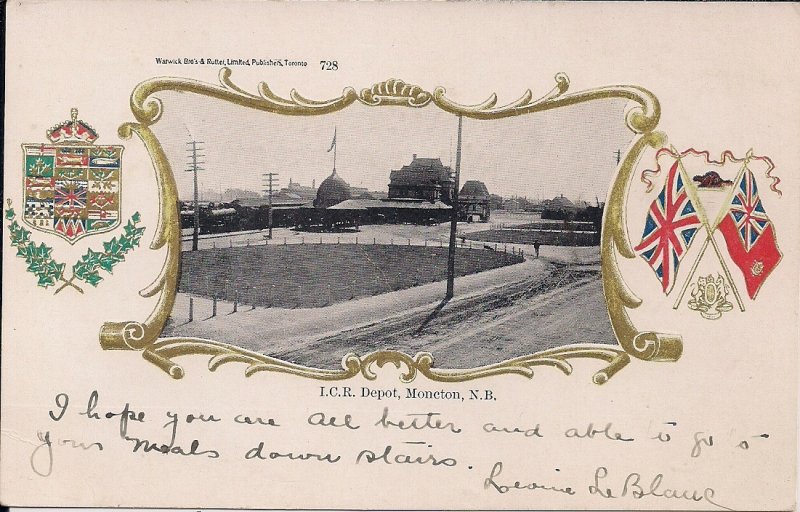 Warwick Bro's & Rutter, Limited, Publishers, Toronto 728
I.C.R. Depot, Moncton, N.B.
I hope you are all better and able to go to
your meals down stairs.
Le Blanc